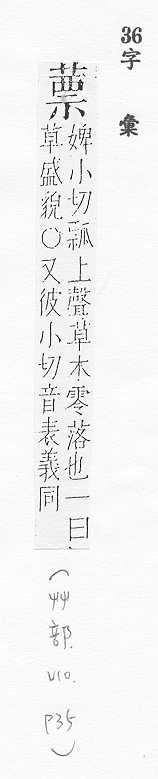 36
字 彙
蔈
婢小切瓢上聲草木零落也一曰
草盛貌○又彼小切音表義同
(艸部. V10. P35)